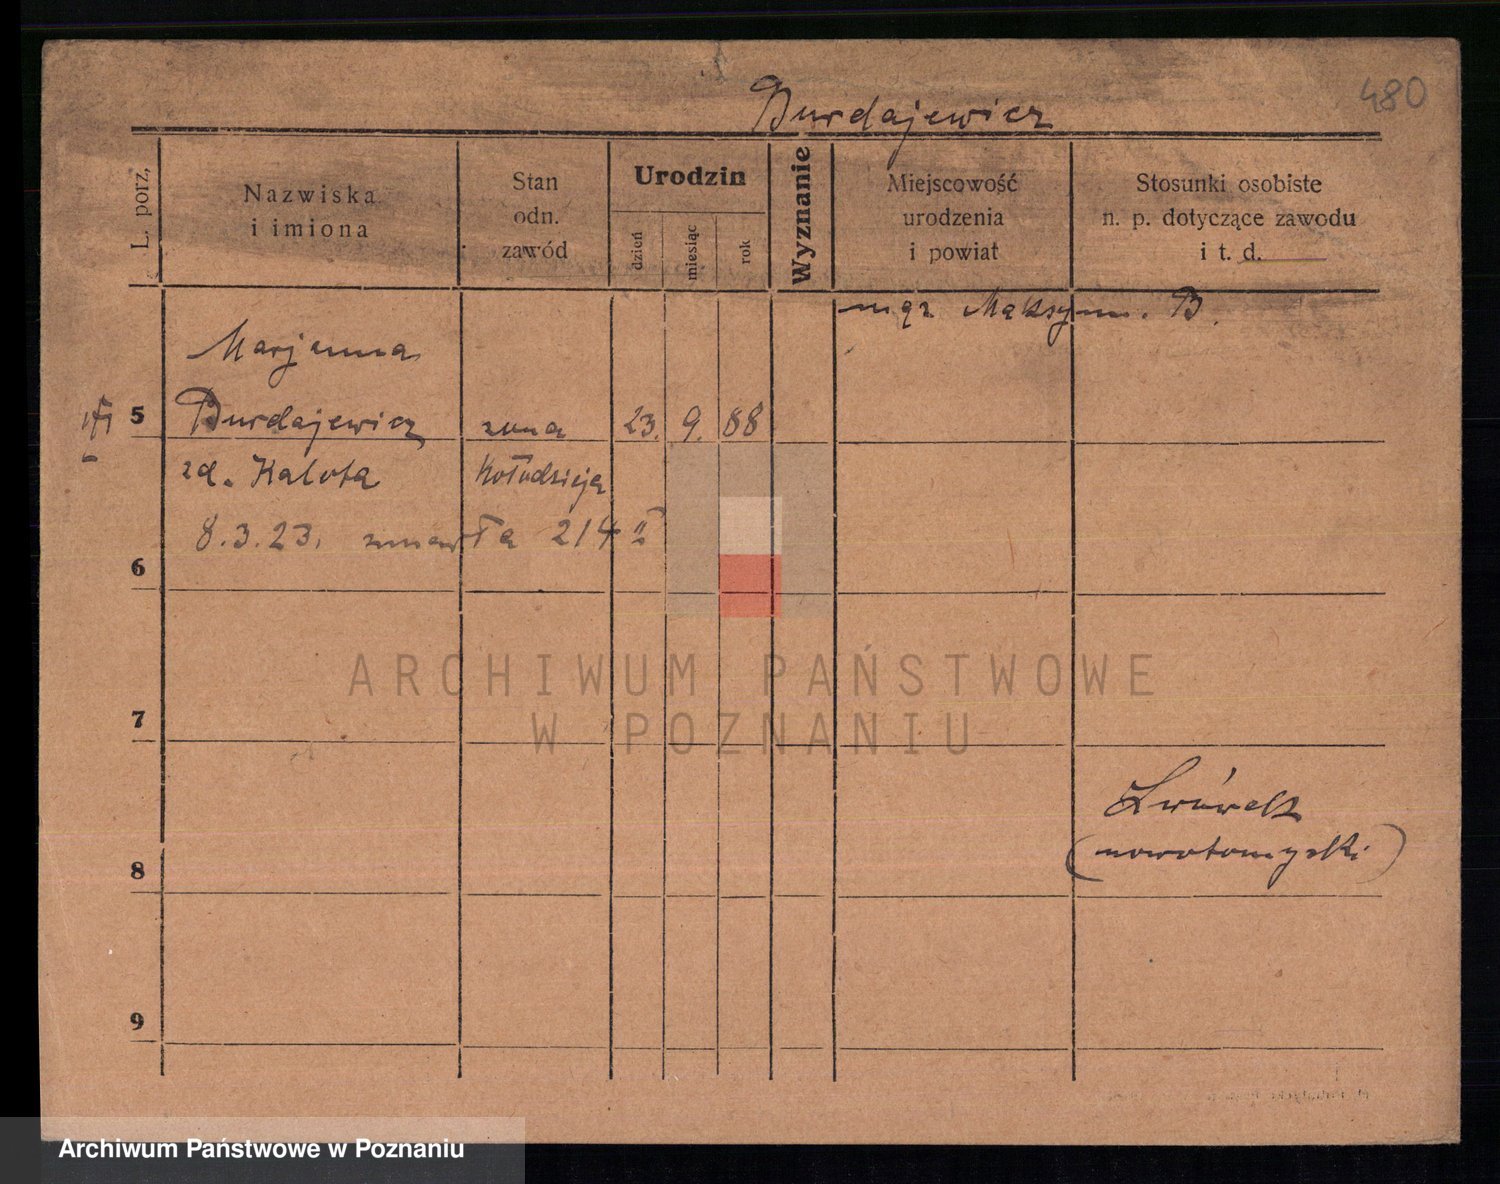 480
Burdajewicz
L. porz.
Nazwiska
i imiona
Stan
odn.
zawód
Urodzin
dzień
miesiąc
rok
Wyznanie
Miejscowość
urodzenia
i powiat
Stosunki osobiste
n. p. dotyczące zawodu
i t. d.
mąż Maksym. B.
Marjanna
5 Burdajewicz żona 23. 9. 88
zd. Kalota Kołodzieja
8.3.23. zmarła 214 II
6
ARCHIWUM PAŃSTWOWE
W POZNANIU
7
Lwówek
(nowotomyski)
8
9
Archiwum Państwowe w Poznaniu